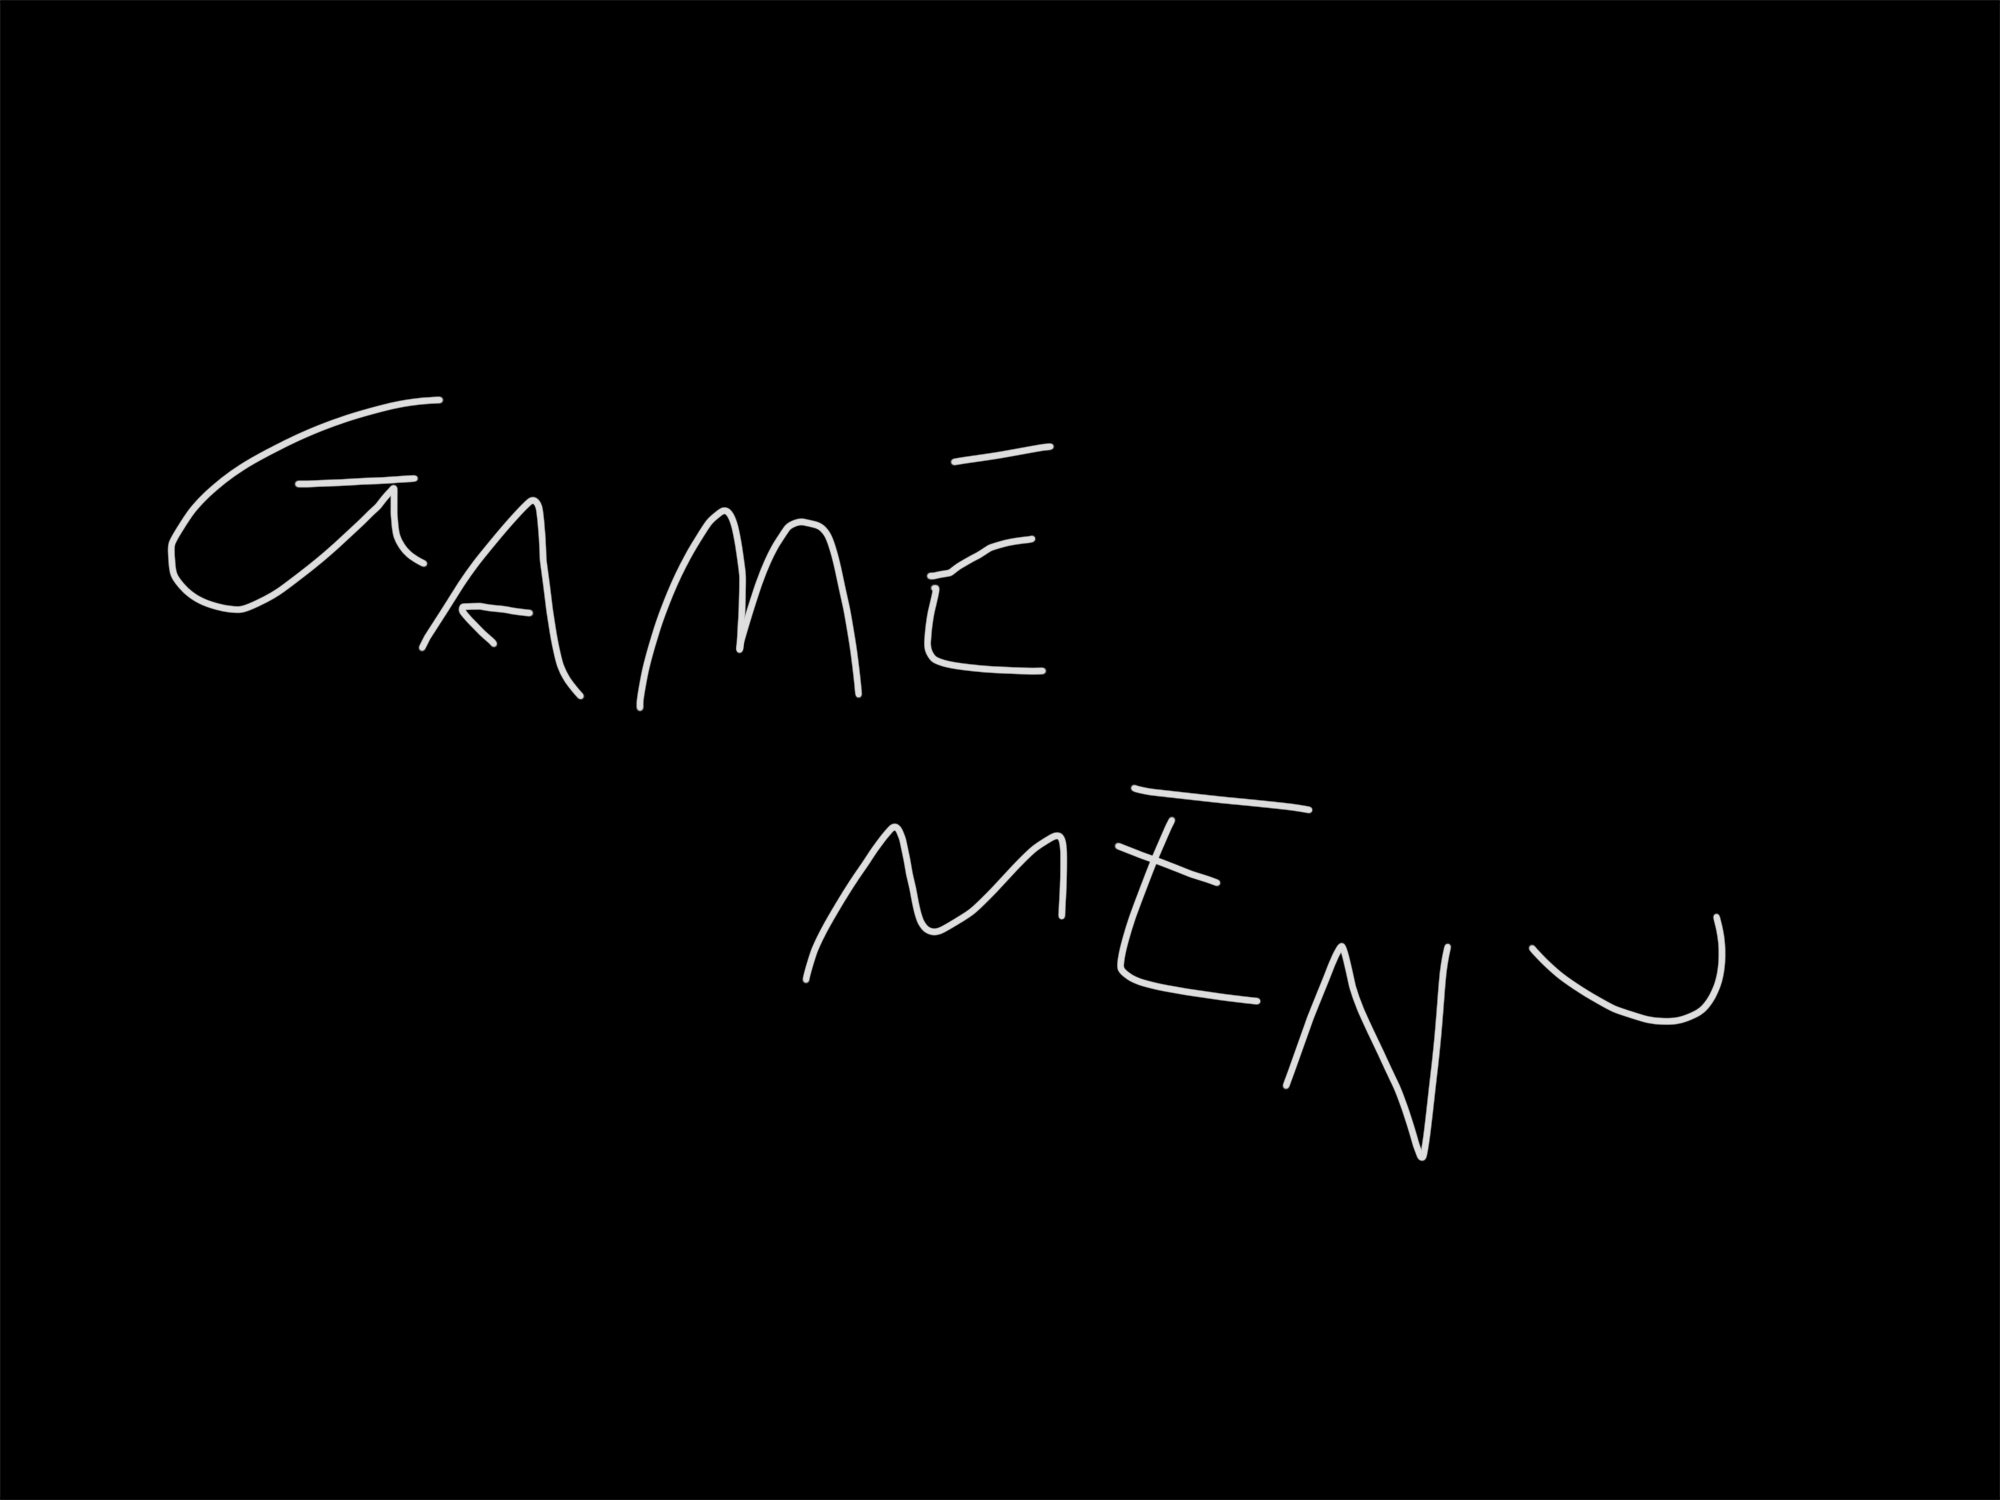 GAME
MENU